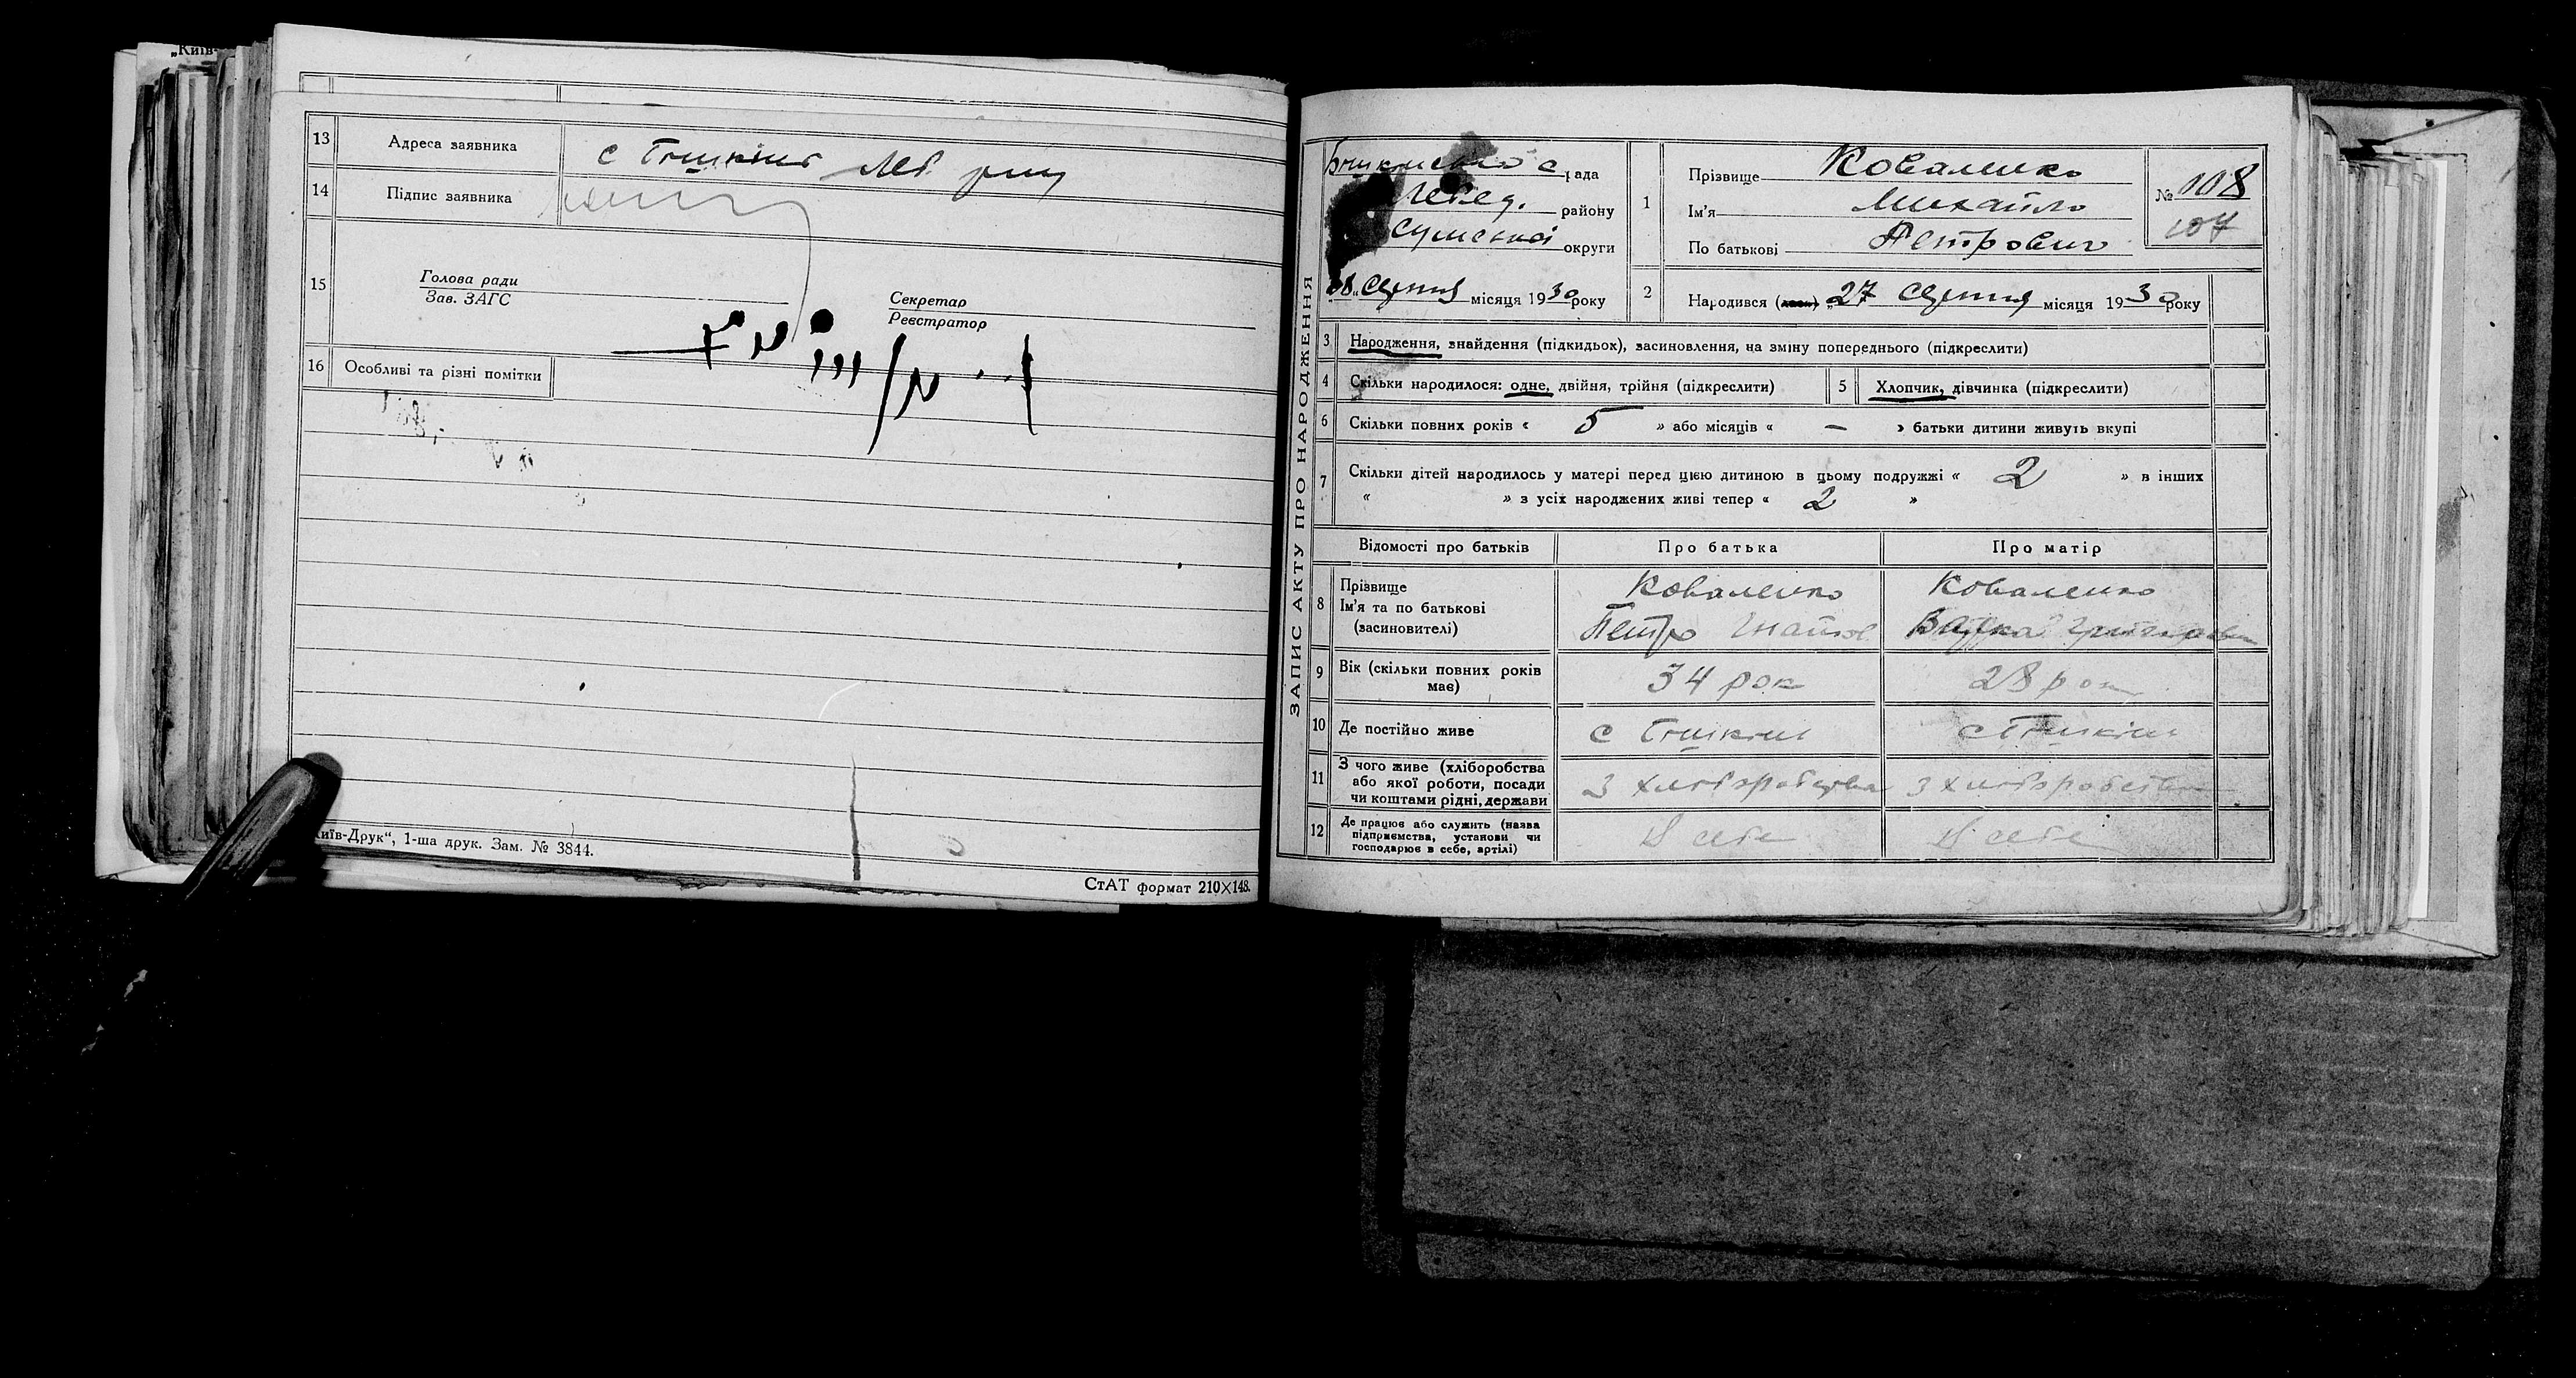 „Київ-
13 Адреса заявника с Бишкінь Леб. рину
14 Підпис заявника
15 Голова ради
Зав. ЗАГС
Секретар
Реєстратор
16 Особливі та різні помітки
Київ-Друк“, 1-ша друк. Зам. № 3844.
СтАТ формат 210×148.
ЗАПИС АКТУ ПРО НАРОДЖЕННЯ
с рада
Лебед. району
Сумської округи
28 Серпня місяця 1930 року
1 Прізвище Коваленко
Ім'я Михайло
По батькові Петрович
№ 108
107
2 Народився (лась) „27 Серпня місяця 1930 року
3 Народження, знайдення (підкидьох), засиновлення, на зміну попереднього (підкреслити)
4 Скільки народилося: одне, двійня, трійня (підкреслити) 5 Хлопчик, дівчинка (підкреслити)
6 Скільки повних років « 5 » або місяців « — » батьки дитини живуть вкупі
7 Скільки дітей народилось у матері перед цією дитиною в цьому подружжі « 2 » в інших
« » з усіх народжених живі тепер « 2 »
Відомості про батьків Про батька Про матір
8 Прізвище Коваленко Коваленко
Ім'я та по батькові
(засиновителі) Петро Гнатов.
9 Вік (скільки повних років має) 34 рок 28 рок
10 Де постійно живе с Бишкінь с Бишкінь
11 З чого живе (хліборобства або якої роботи, посади чи коштами рідні, держави З хліборобства З хліборобства
12 Де працює або служить (назва підприємства, установи чи господарює в себе, артілі) В себе В себе